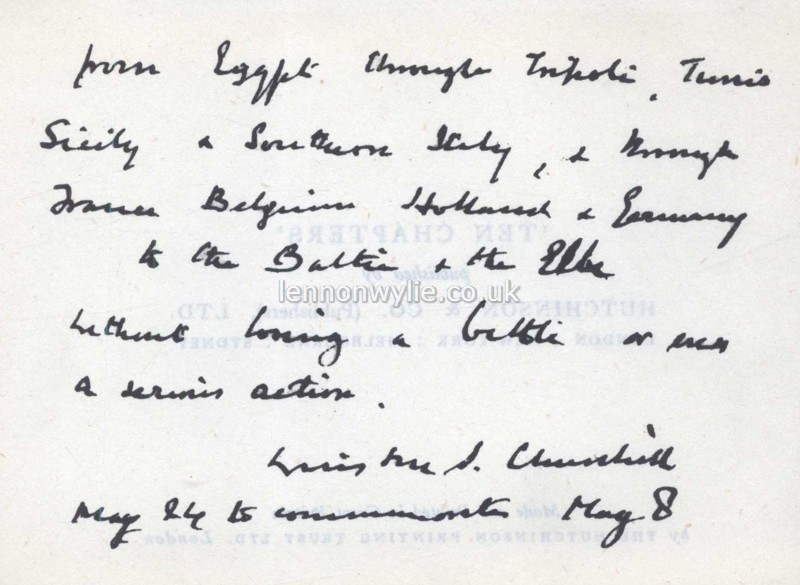 from Egypt through Tripoli, Tunis
Sicily & Southern Italy, & through
France Belgium Holland & Germany
to the Baltic & the Elbe
without losing a battle or even
a serious action.
Winston S. Churchill
May 24 to commemorate May 8
TEN CHAPTERS
published by
lennonwylie.co.uk
HUTCHINSON & CO. (Publishers) LTD.
LONDON : NEW YORK : MELBOURNE : SYDNEY
by THE HUTCHINSON PRINTING TRUST LTD. London